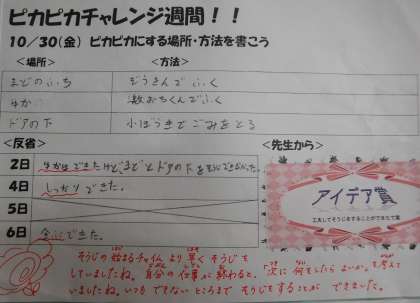 ピカピカチャレンジ週間！！
10/30(金) ピカピカにする場所・方法を書こう
<場所> <方法>
まどのふち ぞうきんでふく
ゆか 激おちくんでふく
ドアの下 小ぼうきでごみをとる
<反省> <先生から>
2日 ゆかはできたけどまどとドアの下をできなかった。
4日 しっかりできた。
5日
6日 全部できた。
アイデア賞
工夫してそうじをすることができたで賞
そうじの始まるチャイムより早くそうじを
していましたね。自分の仕事が終わると、「次に何をしたらよいか」を考えて
いましたね。いつもできないところまでそうじをすることができました。